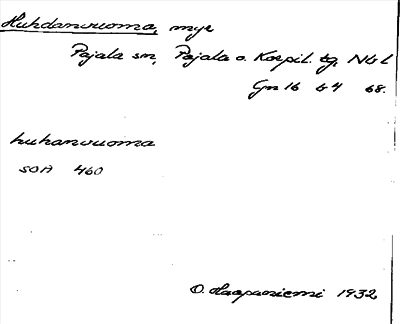 Huhdanvuoma, myr
Pajala sn, Pajala o. Korpil. tg, Nbl
Gn 16 b4 68.
huhanvuoma
SOA 460
O. Haapaniemi 1932